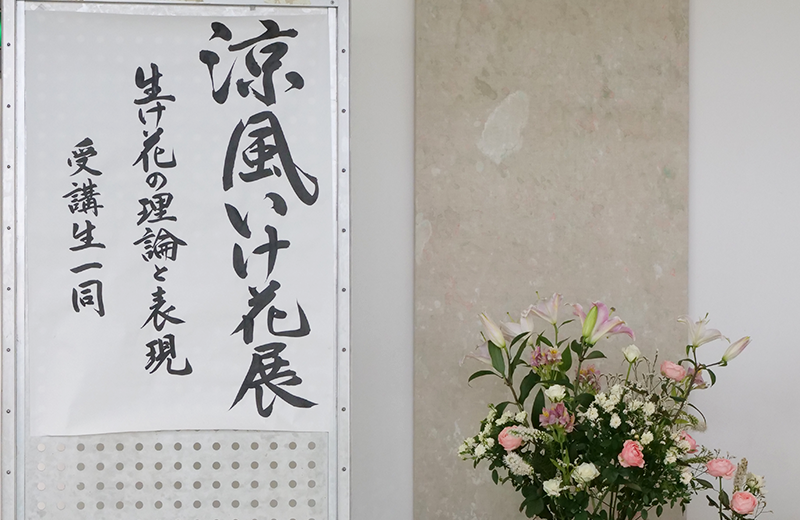 涼風いけ花展
生け花の理論と表現
受講生一同